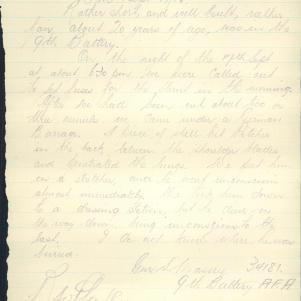 Rather short, and well built, rather
about 20 years of age, was in the
9th Battery.
On the night of the Sept
at about 5.30 pm we were called out
to set fuses for the stunt in the morning.
After we had been out about 200 or
three minutes we came under a German
Barrage. A piece of shell hit
in the back between the shoulder blades
and penetrated the lungs. We put him
on a stretcher, and he was unconscious
almost immediately. We took him down
to a dressing station, but he died on
the way down being unconscious to the
last. I do not know where he was
buried.
34181.
9th Battery A.F.A